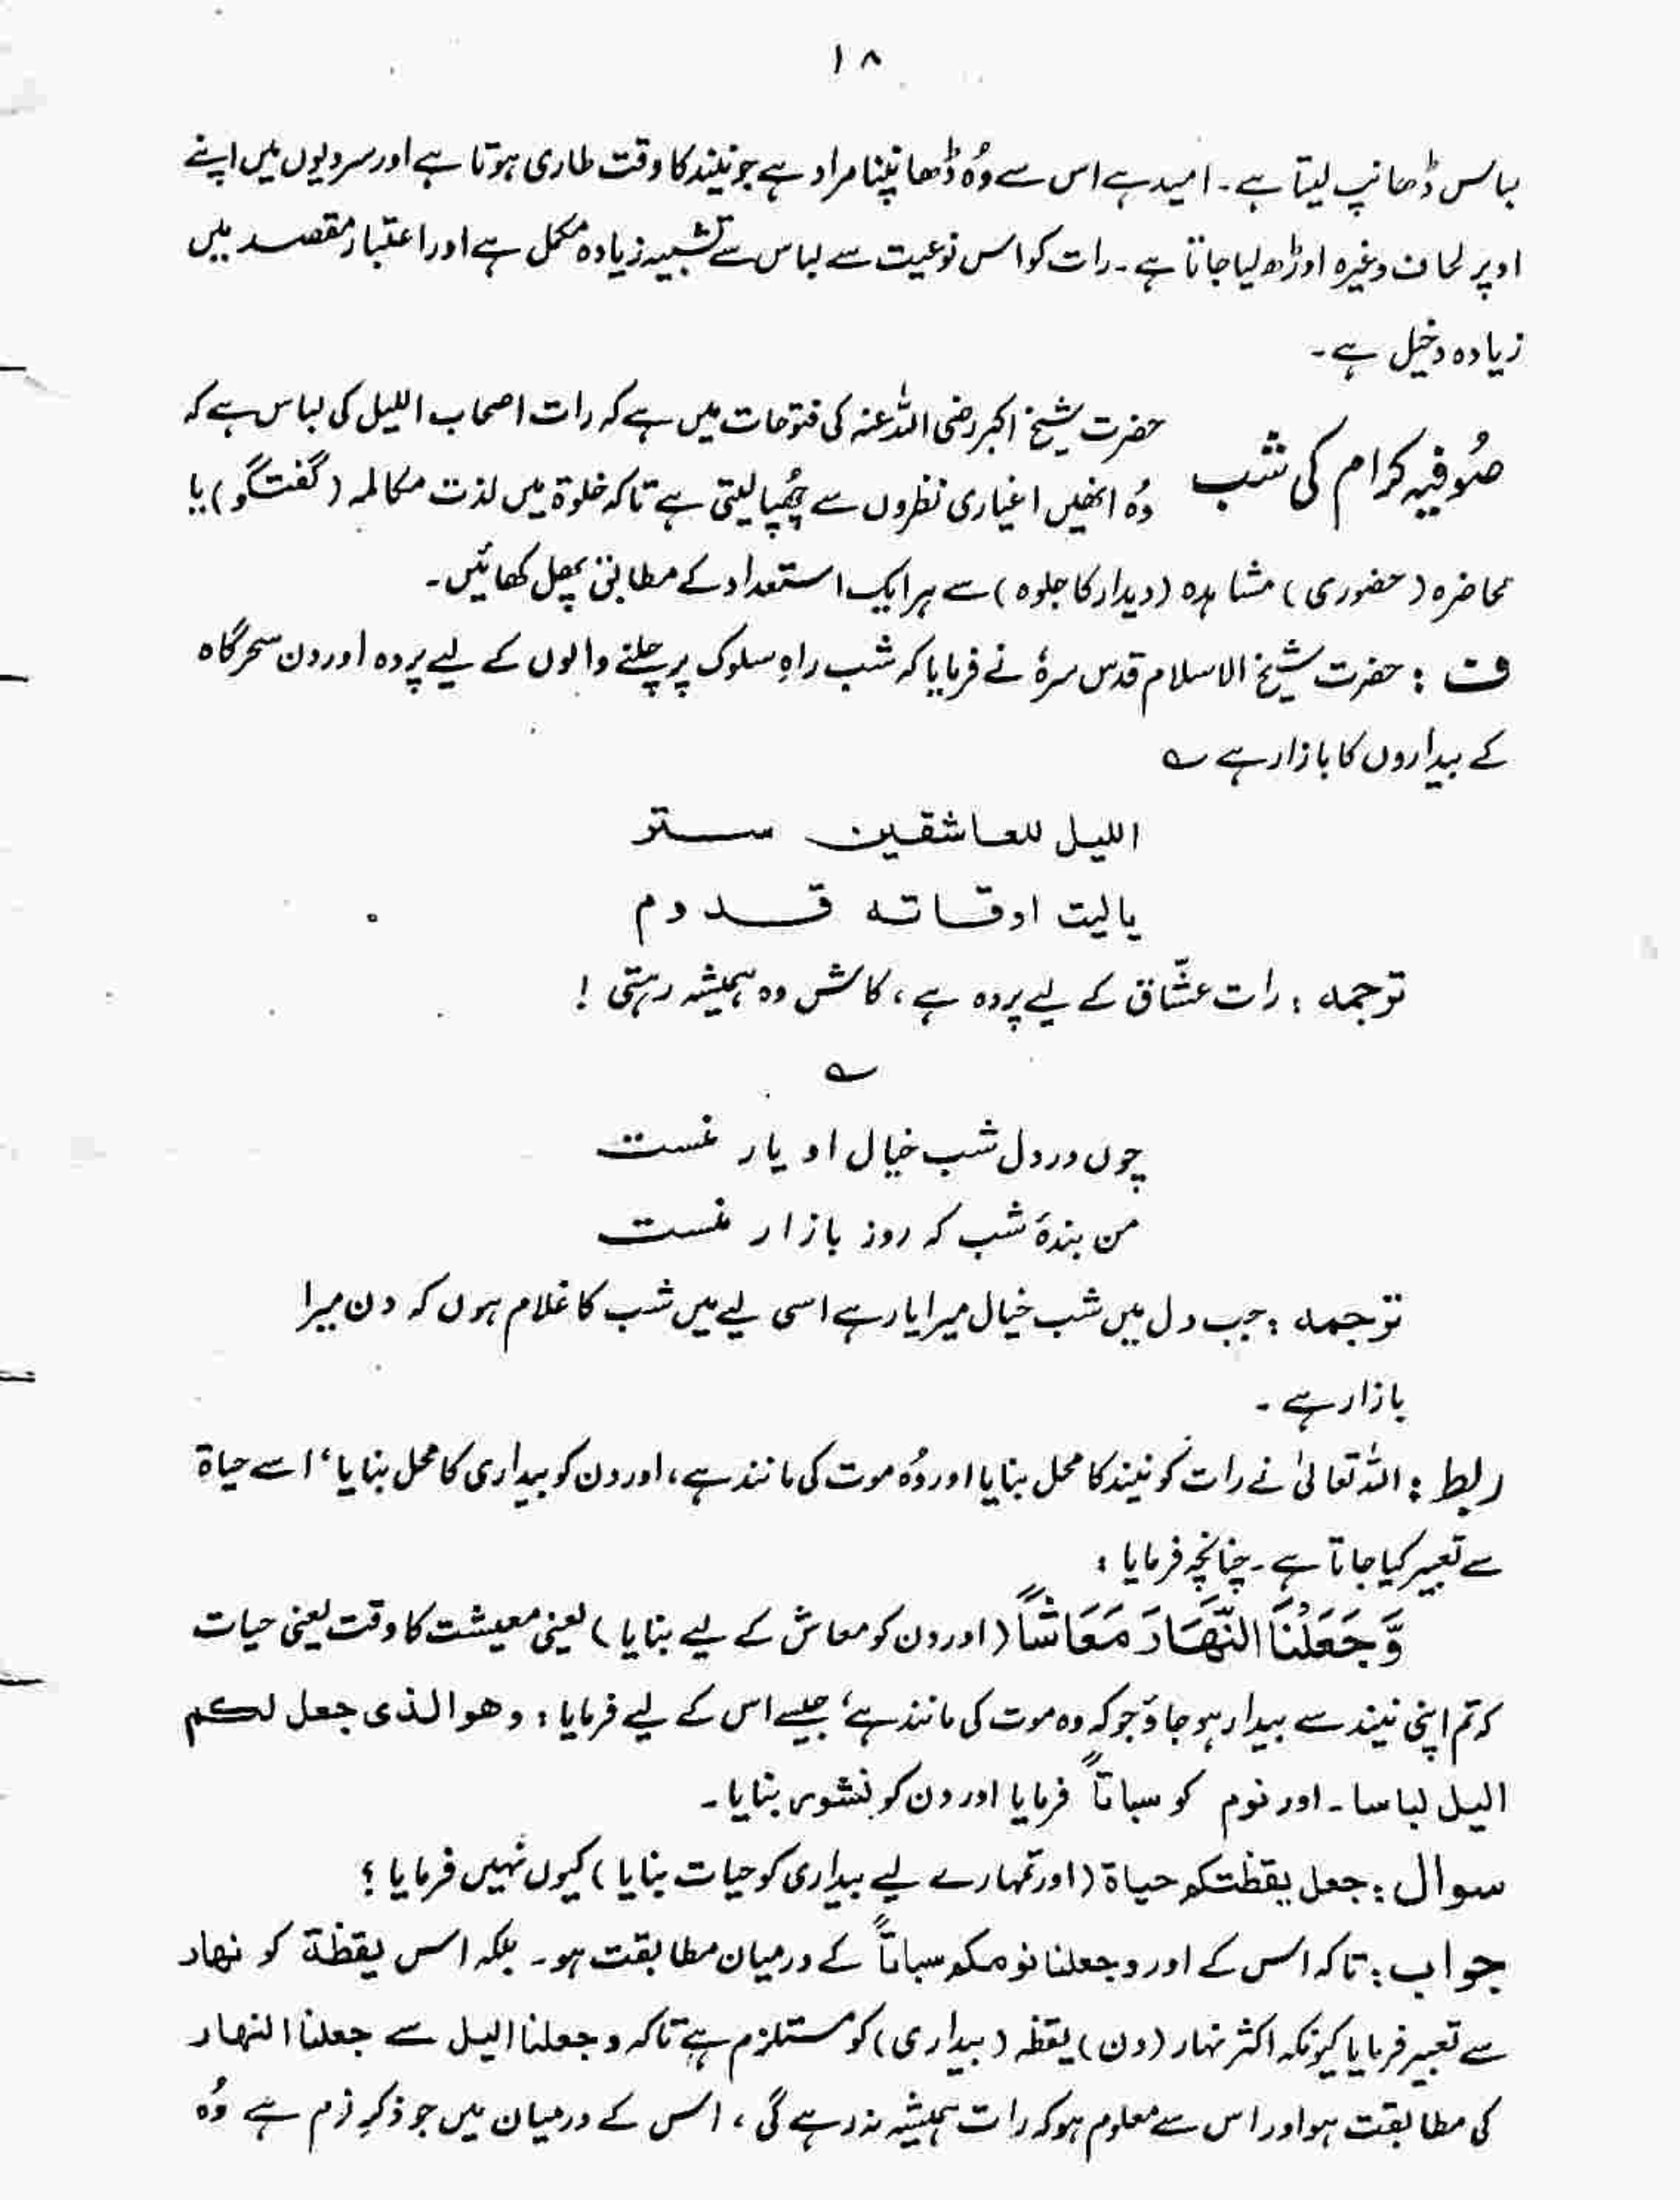 ۱۸
لباس ڈھانپ لیتا ہے۔ امید ہے اس سے وُہ ڈھانپنا مراد ہے جو نیند کا وقت طاری ہوتا ہے اور سردیوں میں اپنے
اوپر لحاف وغیرہ اوڑھ لیا جاتا ہے۔ رات کو اس نوعیت سے لباس سے تشبیہ زیادہ مکمل ہے اور اعتبار مقصد میں
زیادہ دخیل ہے۔
صُوفیہ کرام کی شب
حضرت شیخ اکبر رضی اللہ عنہ کی فتوحات میں ہے کہ رات اصحاب اللیل کی لباس ہے کہ
وُہ انھیں اغیار کی نظروں سے چُھپا لیتی ہے تاکہ خلوۃ میں لذت مکالمہ (گفتگو) یا
محاضرہ (حضوری) مشاہدہ (دیدار کا جلوہ) سے ہر ایک استعداد کے مطابق پھل کھائیں۔
ف : حضرت شیخ الاسلام قدس سرہٗ نے فرمایا کہ شب راہِ سلوک پر چلنے والوں کے لیے پردہ اور دن سحرگاہ
کے بیداروں کا بازار ہے ؎
اللیل للعاشقین ستر
یا لیت اوقاتہ قد دم
ترجمہ : رات عشّاق کے لیے پردہ ہے، کاش وہ ہمیشہ رہتی !
؎
چوں در دل شب خیال او یار منست
من بندۂ شب کہ روز بازار منست
ترجمہ : جب دل میں شب خیال میرا یار ہے اسی لیے میں شب کا غلام ہوں کہ دن میرا
بازار ہے ۔
ربط : اللہ تعالیٰ نے رات کو نیند کا محل بنایا اور وُہ موت کی مانند ہے، اور دن کو بیداری کا محل بنایا، اسے حیاۃ
سے تعبیر کیا جاتا ہے۔ چنانچہ فرمایا :
وَّجَعَلْنَا النَّهَارَ مَعَاشًا (اور دن کو معاش کے لیے بنایا) یعنی معیشت کا وقت یعنی حیات
کہ تم اپنی نیند سے بیدار ہو جاؤ جو کہ وہ موت کی مانند ہے، جیسے اس کے لیے فرمایا : وهو الذی جعل لکم
الیل لباسا۔ اور نوم کو سباتاً فرمایا اور دن کو نشور بنایا۔
سوال : جعل یقظتکم حیاۃ (اور تمہارے لیے بیداری کو حیات بنایا) کیوں نہیں فرمایا ؟
جواب : تاکہ اس کے اور وجعلنا نومکم سباتاً کے درمیان مطابقت ہو۔ بلکہ اس یقظۃ کو نهار
سے تعبیر فرمایا کیونکہ اکثر نہار (دن) یقظہ (بیداری) کو مستلزم ہے تاکہ وجعلنا الیل سے جعلنا النهار
کی مطابقت ہو اور اس سے معلوم ہو کہ رات ہمیشہ نہ رہے گی، اس کے درمیان میں جو ذکرِ نوم ہے وُہ